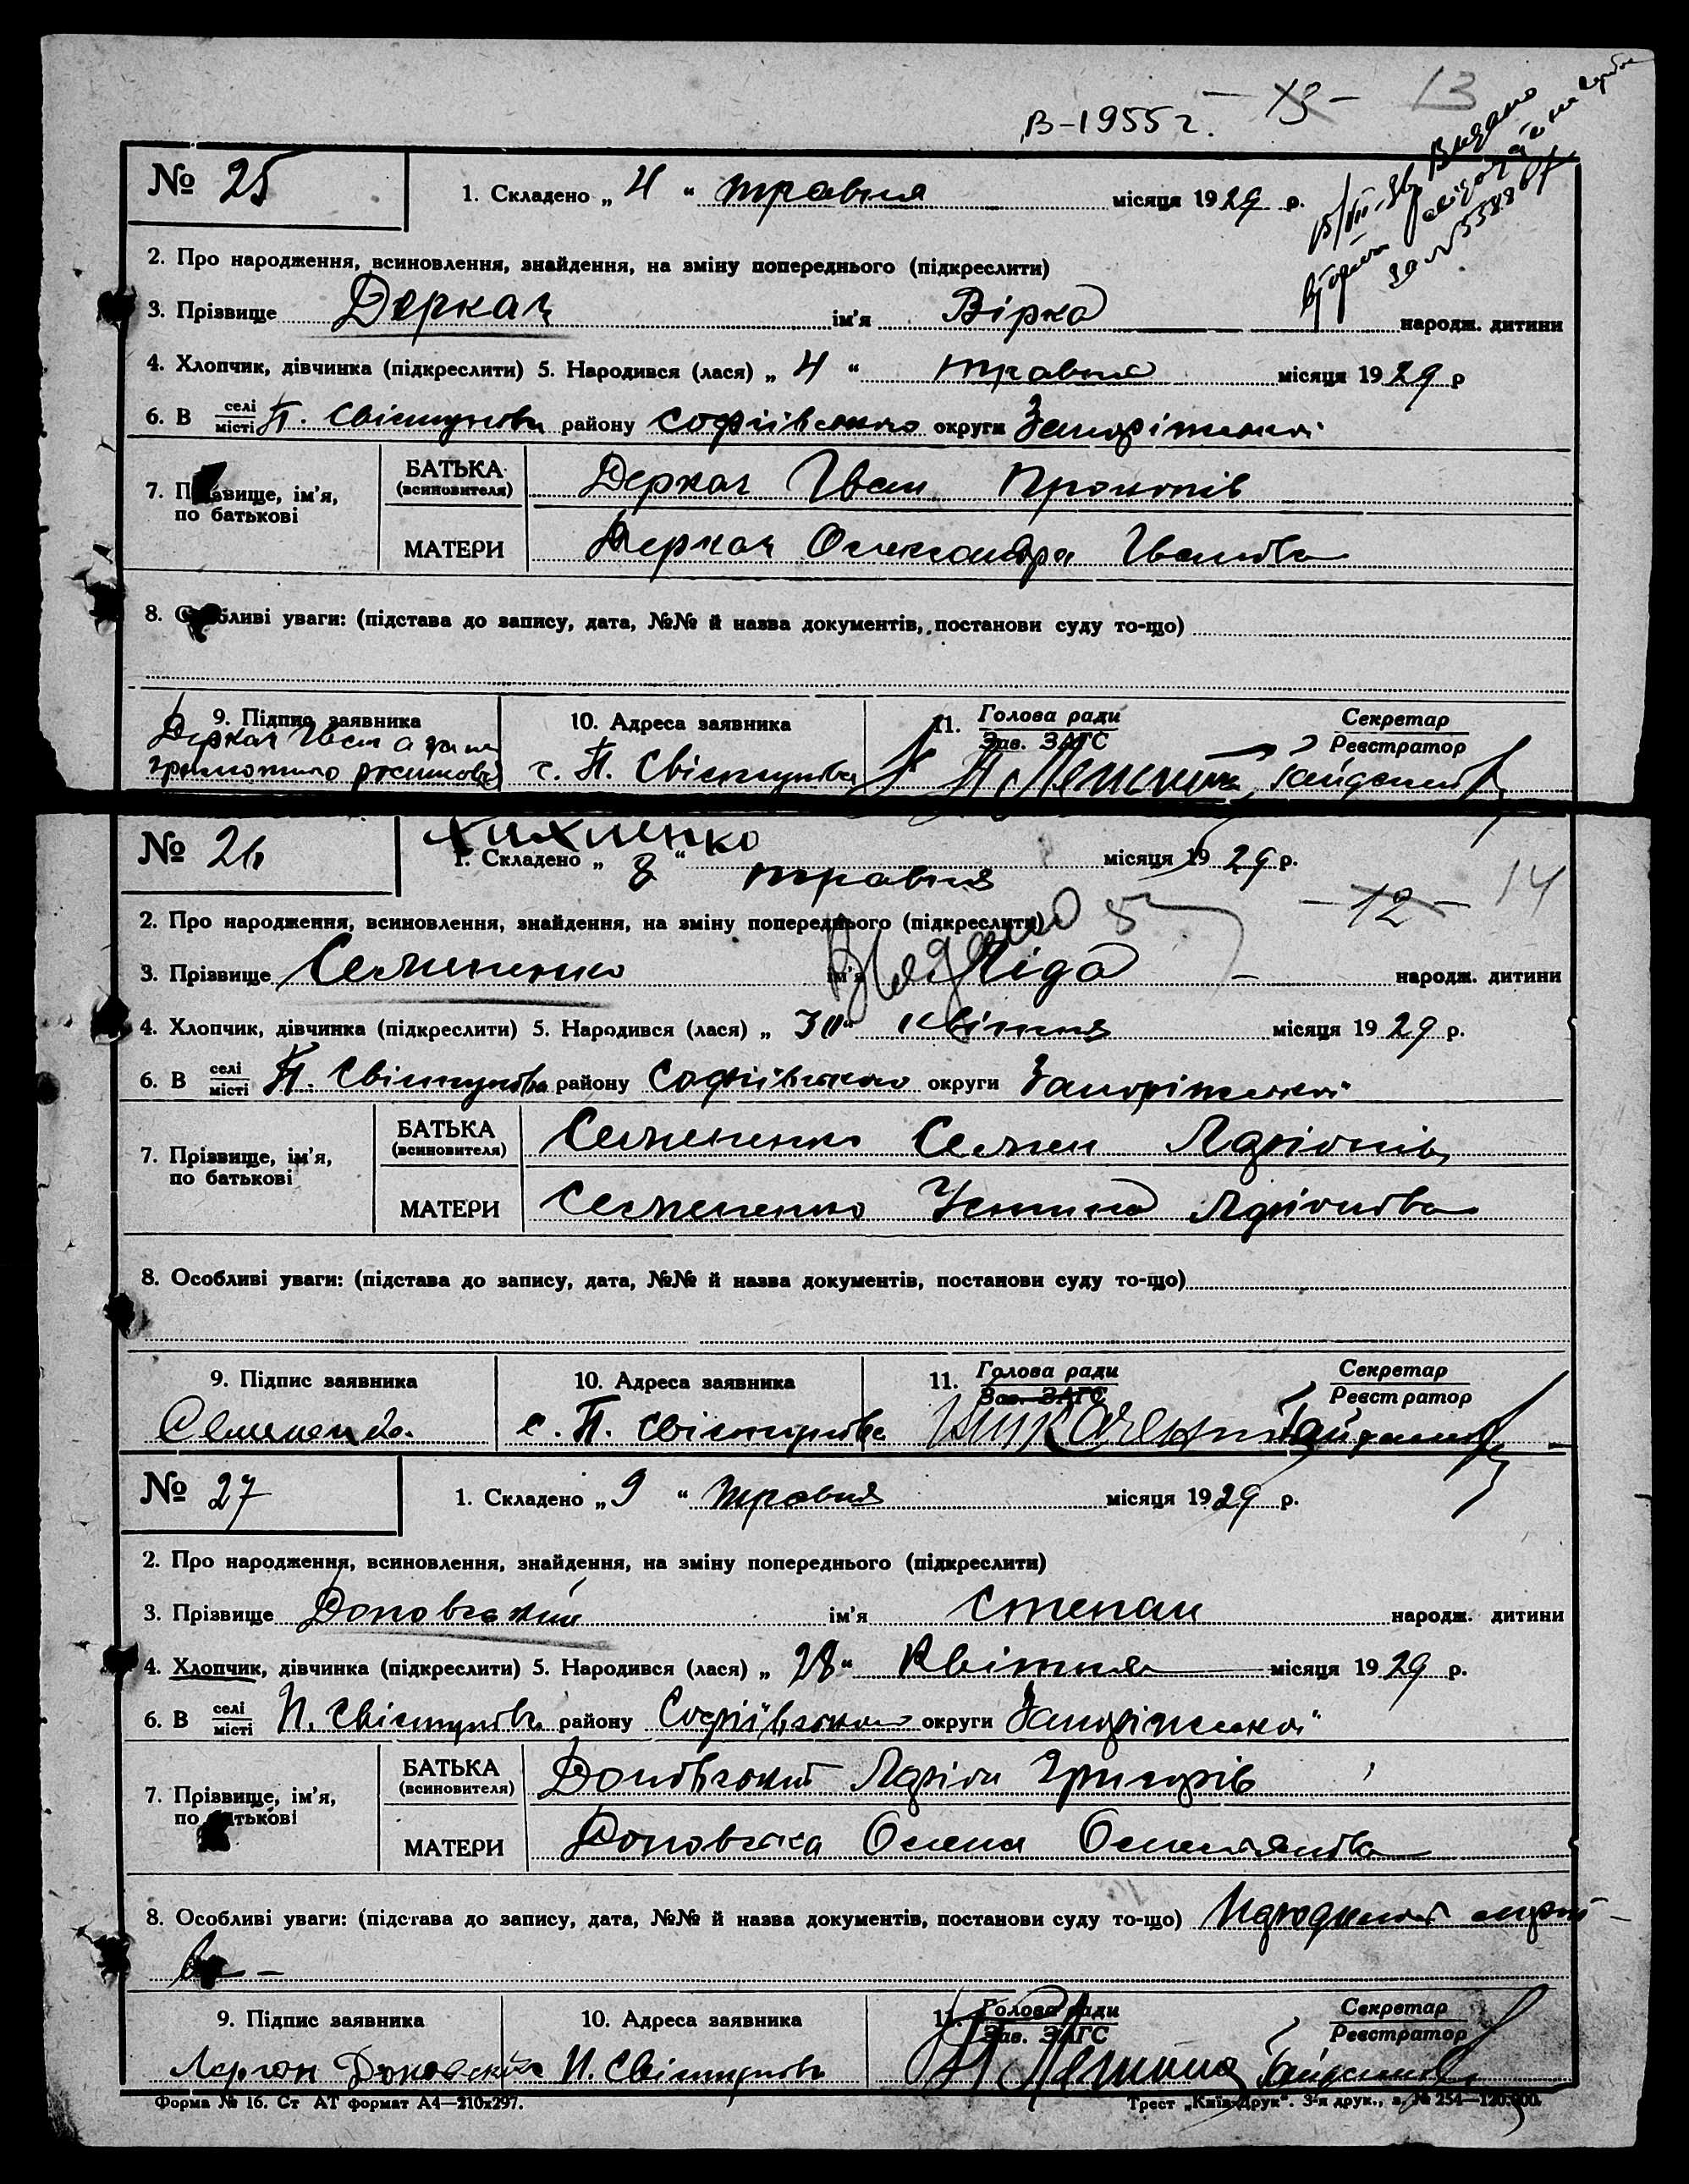 В-1955 г. - 13 - 13
№ 25 1. Складено „ 4 “ травня місяця 1929 р.
15/VIII-36 Видано
за № 558867
2. Про народження, всиновлення, знайдення, на зміну попереднього (підкреслити)
3. Прізвище Деркач ім’я Вірка народж. дитини
4. Хлопчик, дівчинка (підкреслити) 5. Народився (лася) „ 4 “ травня місяця 1929 р
6. В селі місті П. Свистунова району Софіївського округи Запоріжської
7. Прізвище, ім’я, по батькові БАТЬКА (всиновителя) Деркач Іван Прокопів
МАТЕРИ Деркач Олександра Іванова
8. Особливі уваги: (підстава до запису, дата, №№ й назва документів, постанови суду то-що)
9. Підпис заявника 10. Адреса заявника 11. Голова ради Зав. ЗАГС Секретар Реєстратор
Деркач Іван а за не
грамотного росписовсь с. П. Свистунова
№ 26 1. Складено „ 8 “ травня місяця 1929 р.
- 12 - 14
2. Про народження, всиновлення, знайдення, на зміну попереднього (підкреслити)
Видано
3. Прізвище Семененко ім’я Ліда народж. дитини
4. Хлопчик, дівчинка (підкреслити) 5. Народився (лася) „ 30 “ квітня місяця 1929 р.
6. В селі місті П. Свистунова району Софіївського округи Запоріжської
7. Прізвище, ім’я, по батькові БАТЬКА (всиновителя) Семененко Семен Ларіонів
МАТЕРИ Семененко Устина Ларіонова
8. Особливі уваги: (підстава до запису, дата, №№ й назва документів, постанови суду то-що)
9. Підпис заявника 10. Адреса заявника 11. Голова ради Зав. ЗАГС Секретар Реєстратор
с. П. Свистунова
№ 27 1. Складено „ 9 “ травня місяця 1929 р.
2. Про народження, всиновлення, знайдення, на зміну попереднього (підкреслити)
3. Прізвище Доновський ім’я Степан народж. дитини
4. Хлопчик, дівчинка (підкреслити) 5. Народився (лася) „ 28 “ Квітня місяця 1929 р.
6. В селі місті П. Свистунова району Софіївського округи Запоріжської
7. Прізвище, ім’я, по батькові БАТЬКА (всиновителя) Доновський Ларіон Григорів
МАТЕРИ Доновська Олена
8. Особливі уваги: (підстава до запису, дата, №№ й назва документів, постанови суду то-що)
9. Підпис заявника 10. Адреса заявника 11. Голова ради Зав. ЗАГС Секретар Реєстратор
П. Свистунова
Форма № 16. Ст АТ формат А4—210х297. Трест „Київ-Друк“. 3-я друк., з. № 254—120.000.